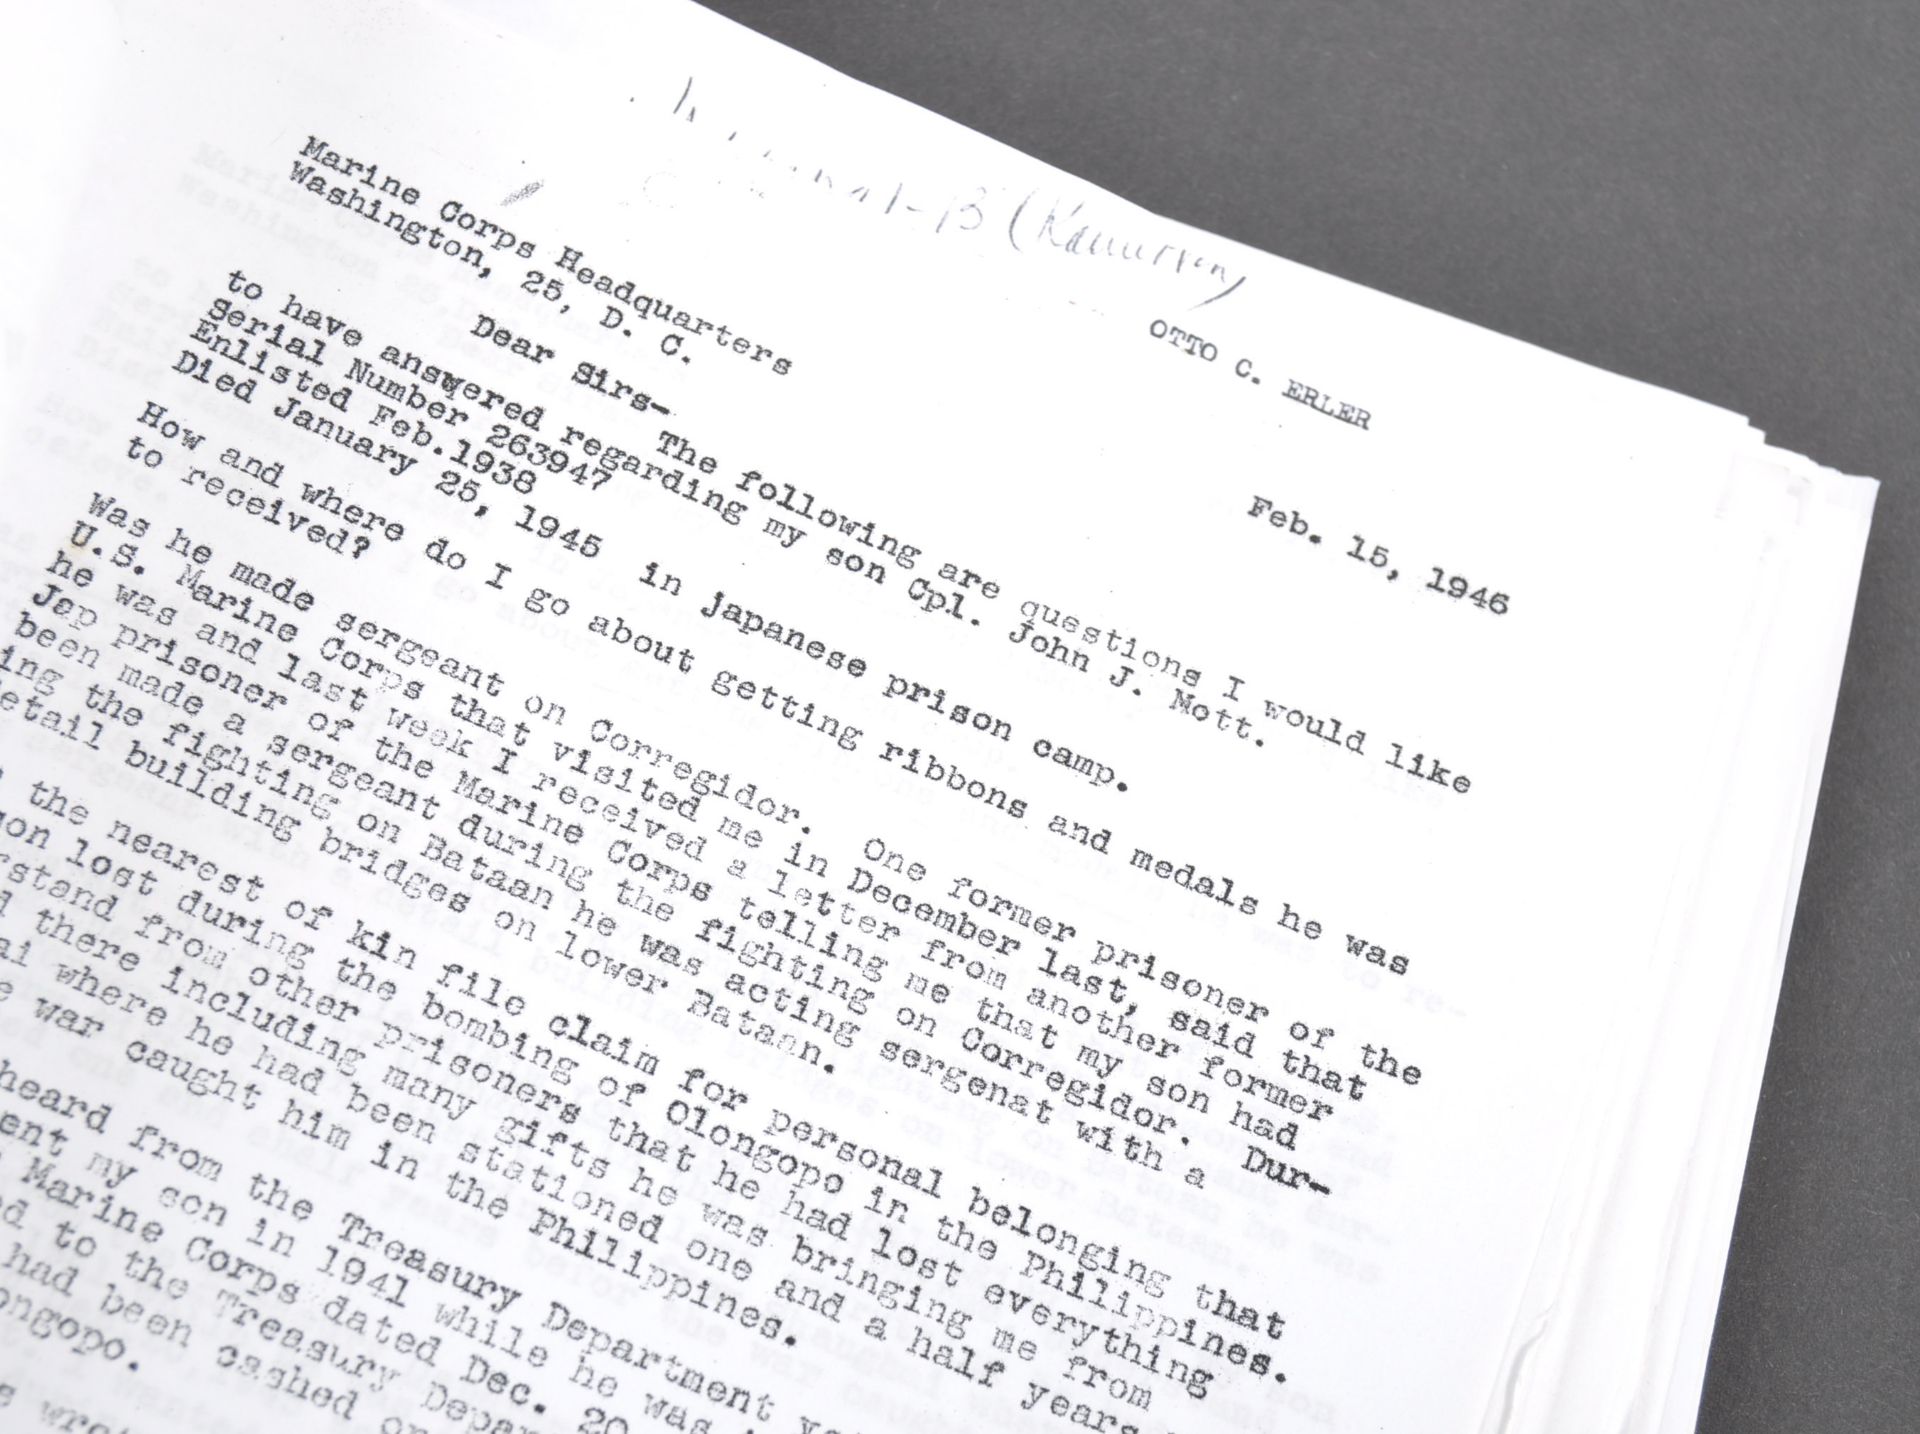 OTTO C. ERLER
Feb. 15, 1946
Marine Corps Headquarters
Washington, 25, D. C.
Dear Sirs-
The following are questions I would like
to have answered regarding my son Cpl. John J. Nott.
Serial Number 263947
Enlisted Feb.1938
Died January 25, 1945 in Japanese prison camp.
How and where do I go about getting ribbons and medals he was
to received?
Was he made sergeant on Corregidor. One former prisoner of the
U.S. Marine Corps that visited me in December last, said that
he was and last week I received a letter from another former
Jap prisoner of the Marine Corps telling me that my son had
been made a sergeant during the fighting on Corregidor. Dur-
ing the fighting on Bataan he was acting sergenat with a
etail building bridges on lower Bataan.
the nearest of kin file claim for personal belonging that
on lost during the bombing of Olongopo in the Philippines.
rstand from other prisoners that he had lost everything
there including many gifts he was bringing me from
ai where he had been stationed one and a half years
war caught him in the Philippines.
heard from the Treasury Department
ent my son in 1941 while he was
Marine Corps dated Dec. 20
ed to the Treasury Depar
had been cashed or
ongopo.